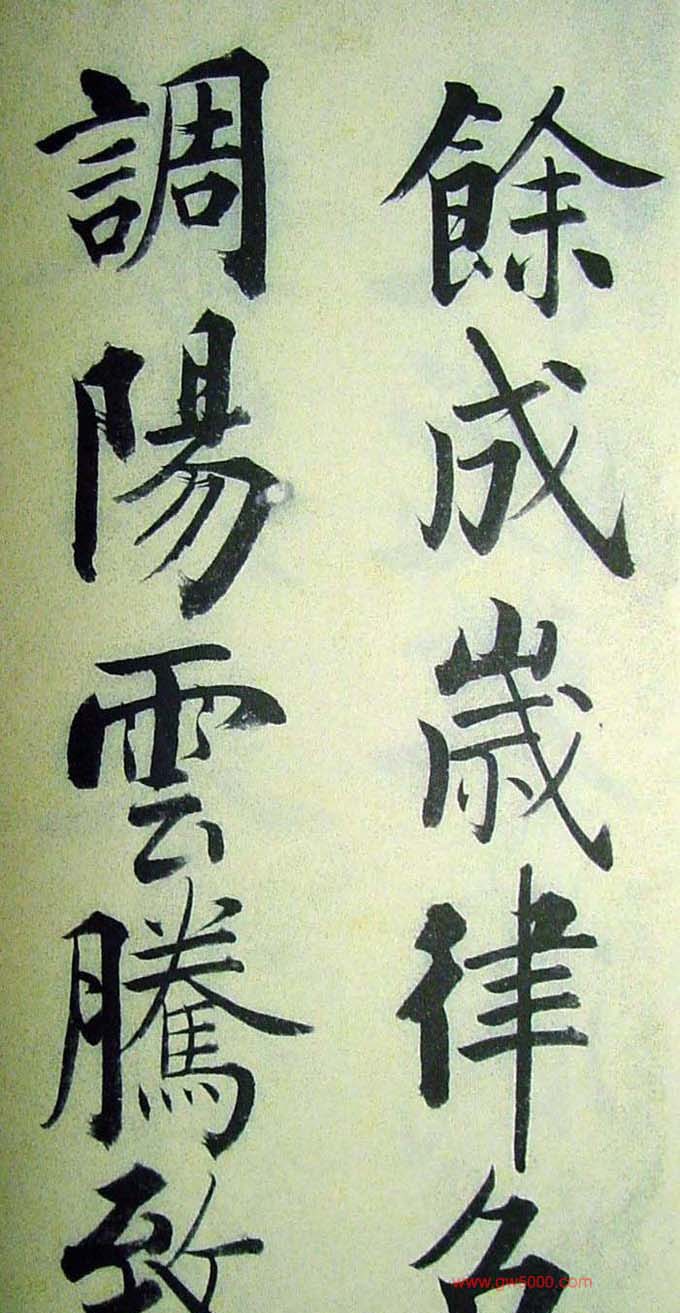 餘成歲律
調陽雲騰致
www.gw5000.com